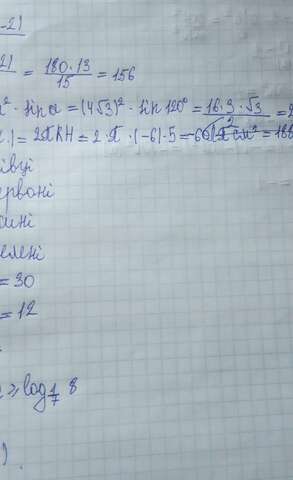 -2)
2) = 180·13 / 15 = 156
² · sin α = (4√3)² · sin 120° = 16·3·√3 / 2 =
.) = 2πRH = 2·π·(-6)·5 =
івці
ервоні
ині
елені
= 30
= 12
≥ log 1/7 8
)